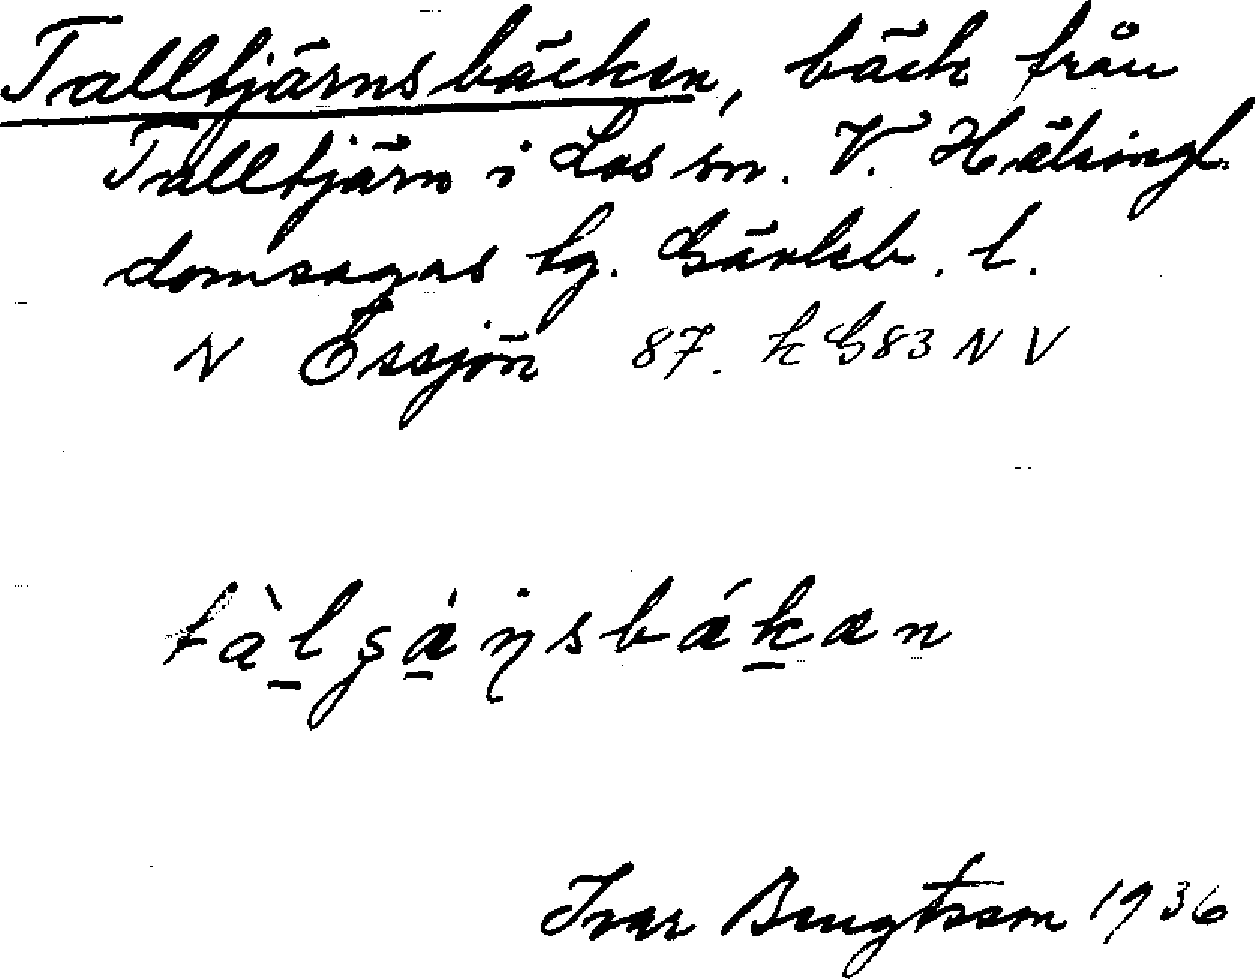 Talltjärnsbäcken, bäck från
Talltjärn i Los sn. V. Hälsingl.
domsagas tg. Gävleb. l.
N Essjön 87. k G83 NV
tàlşä́ṇsbǽkæn
Ivar Bengtsson 1936